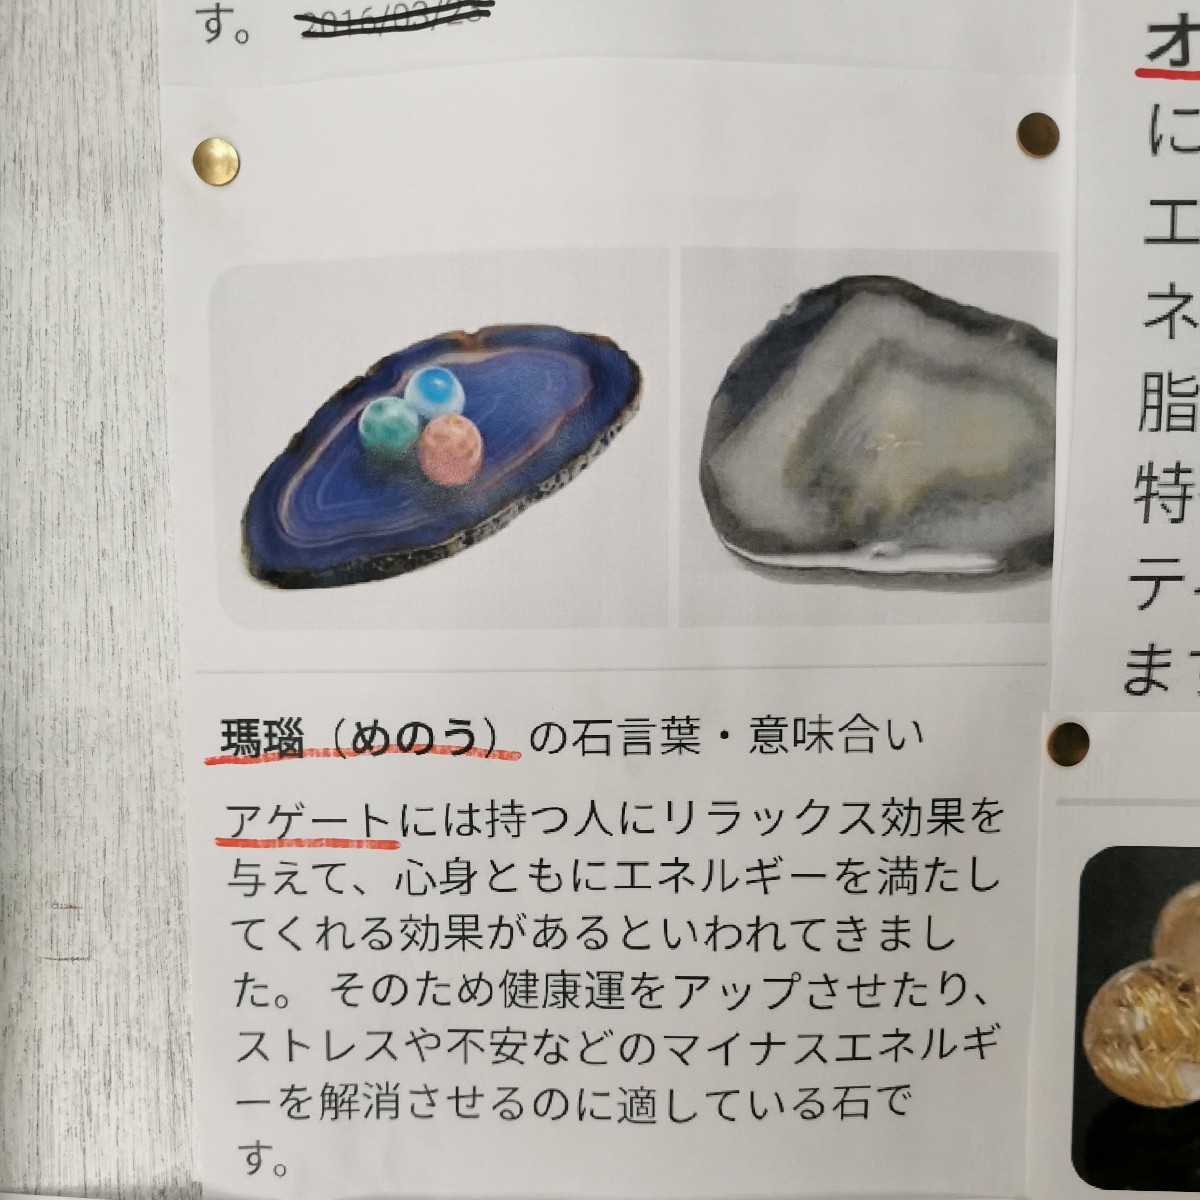 す。 2016/03/23
瑪瑙（めのう）の石言葉・意味合い
アゲートには持つ人にリラックス効果を
与えて、心身ともにエネルギーを満たし
てくれる効果があるといわれてきまし
た。 そのため健康運をアップさせたり、
ストレスや不安などのマイナスエネルギ
ーを解消させるのに適している石で
す。
オ
に
エ
ネ
脂
特
ティ
ます